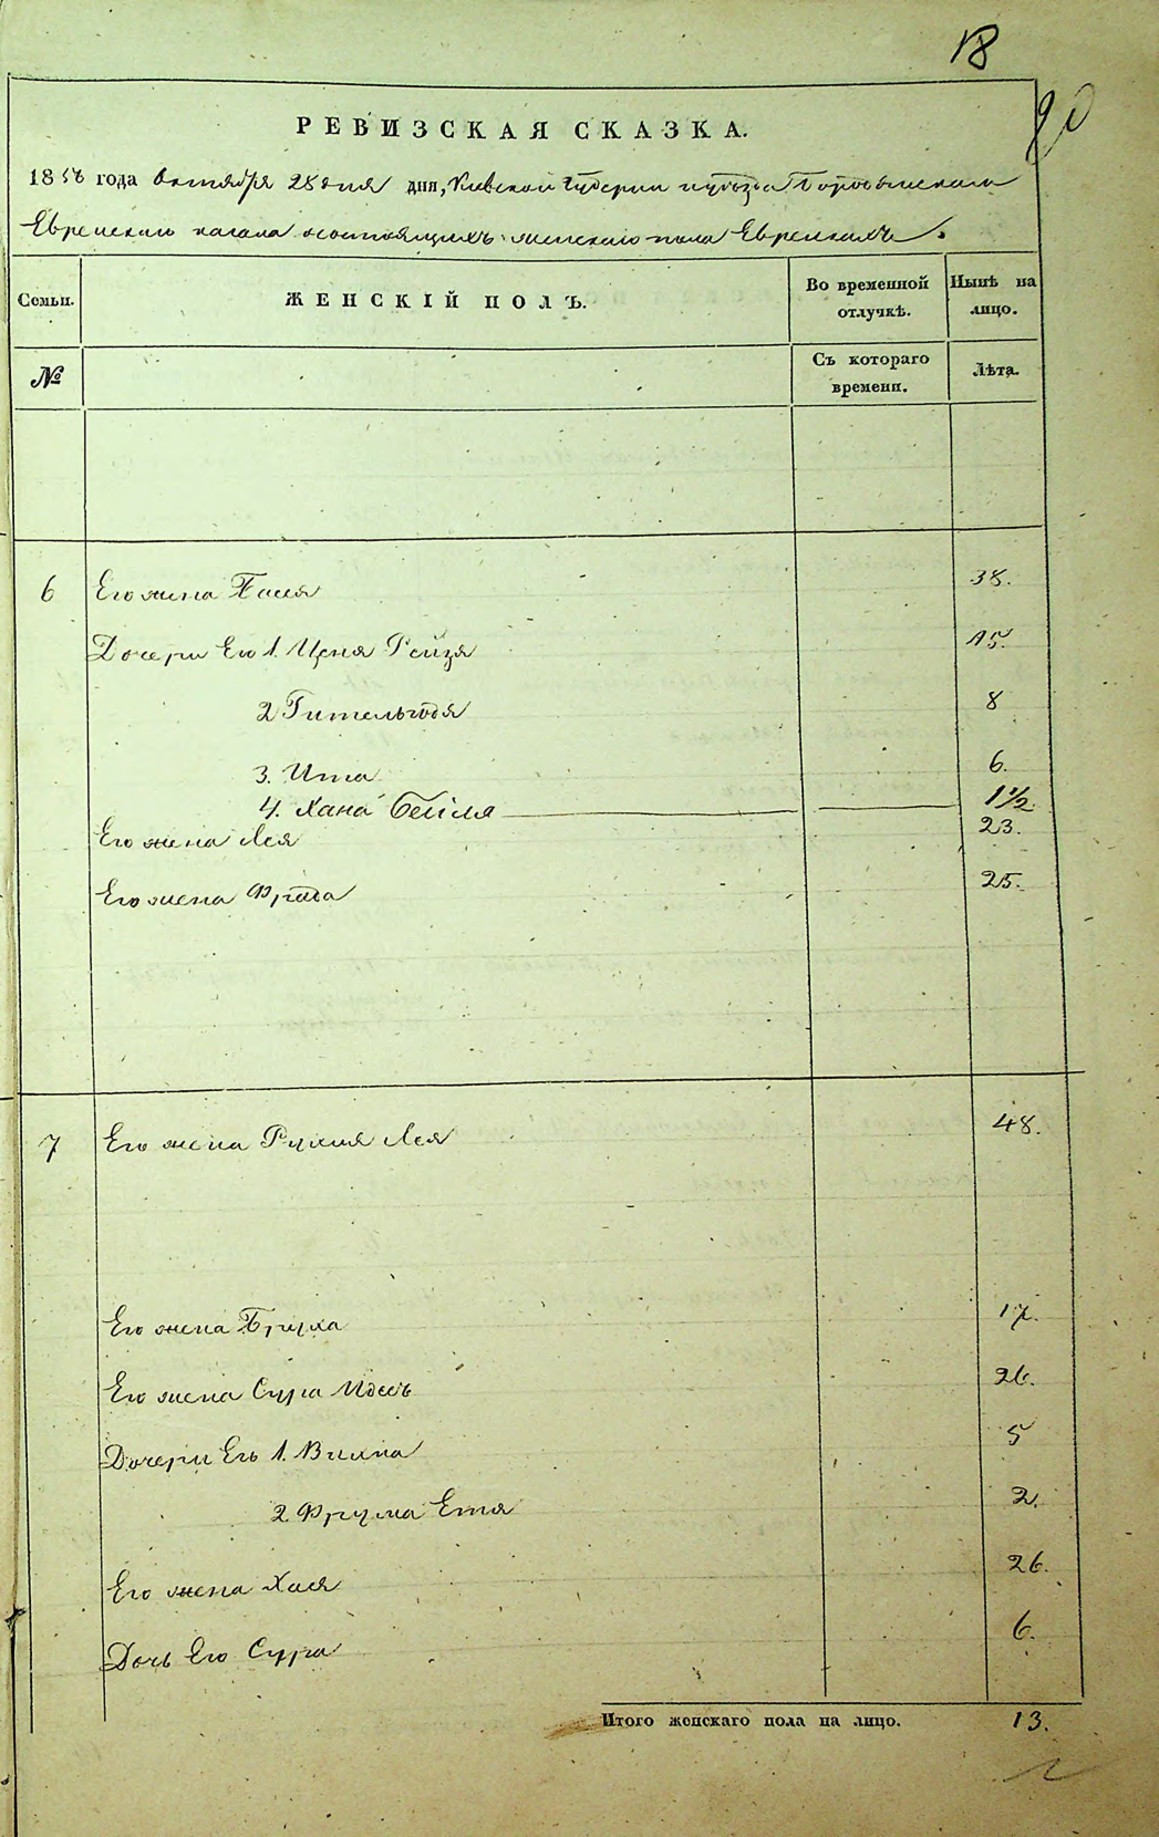 18
20
РЕВИЗСКАЯ СКАЗКА.
18 года октября 28 дня дня, Киевской Губернии и уѣзда
Еврейскаго кагала о состоящихъ женскаго пола Евреикахъ.
Семьи.
ЖЕНСКІЙ ПОЛЪ.
Во временной отлучкѣ.
Нынѣ на лицо.
№
Съ котораго времени.
Лѣта.
6 Его жена Хася 38.
Дочери Его 1. Рейзя 15.
2 8
3. Ита 6.
4. Хана Бейля 1½
Его жена Лея 23.
Его жена Фрида 25.
7 Его жена Рухля Лея 48.
Его жена Бруха 17.
Его жена Сура Идесъ 26.
Дочери Его 1. 5
2. Фрума Етя 2.
Его жена Хася 26.
Дочь Его Сура 6.
Итого женскаго пола на лицо. 13.